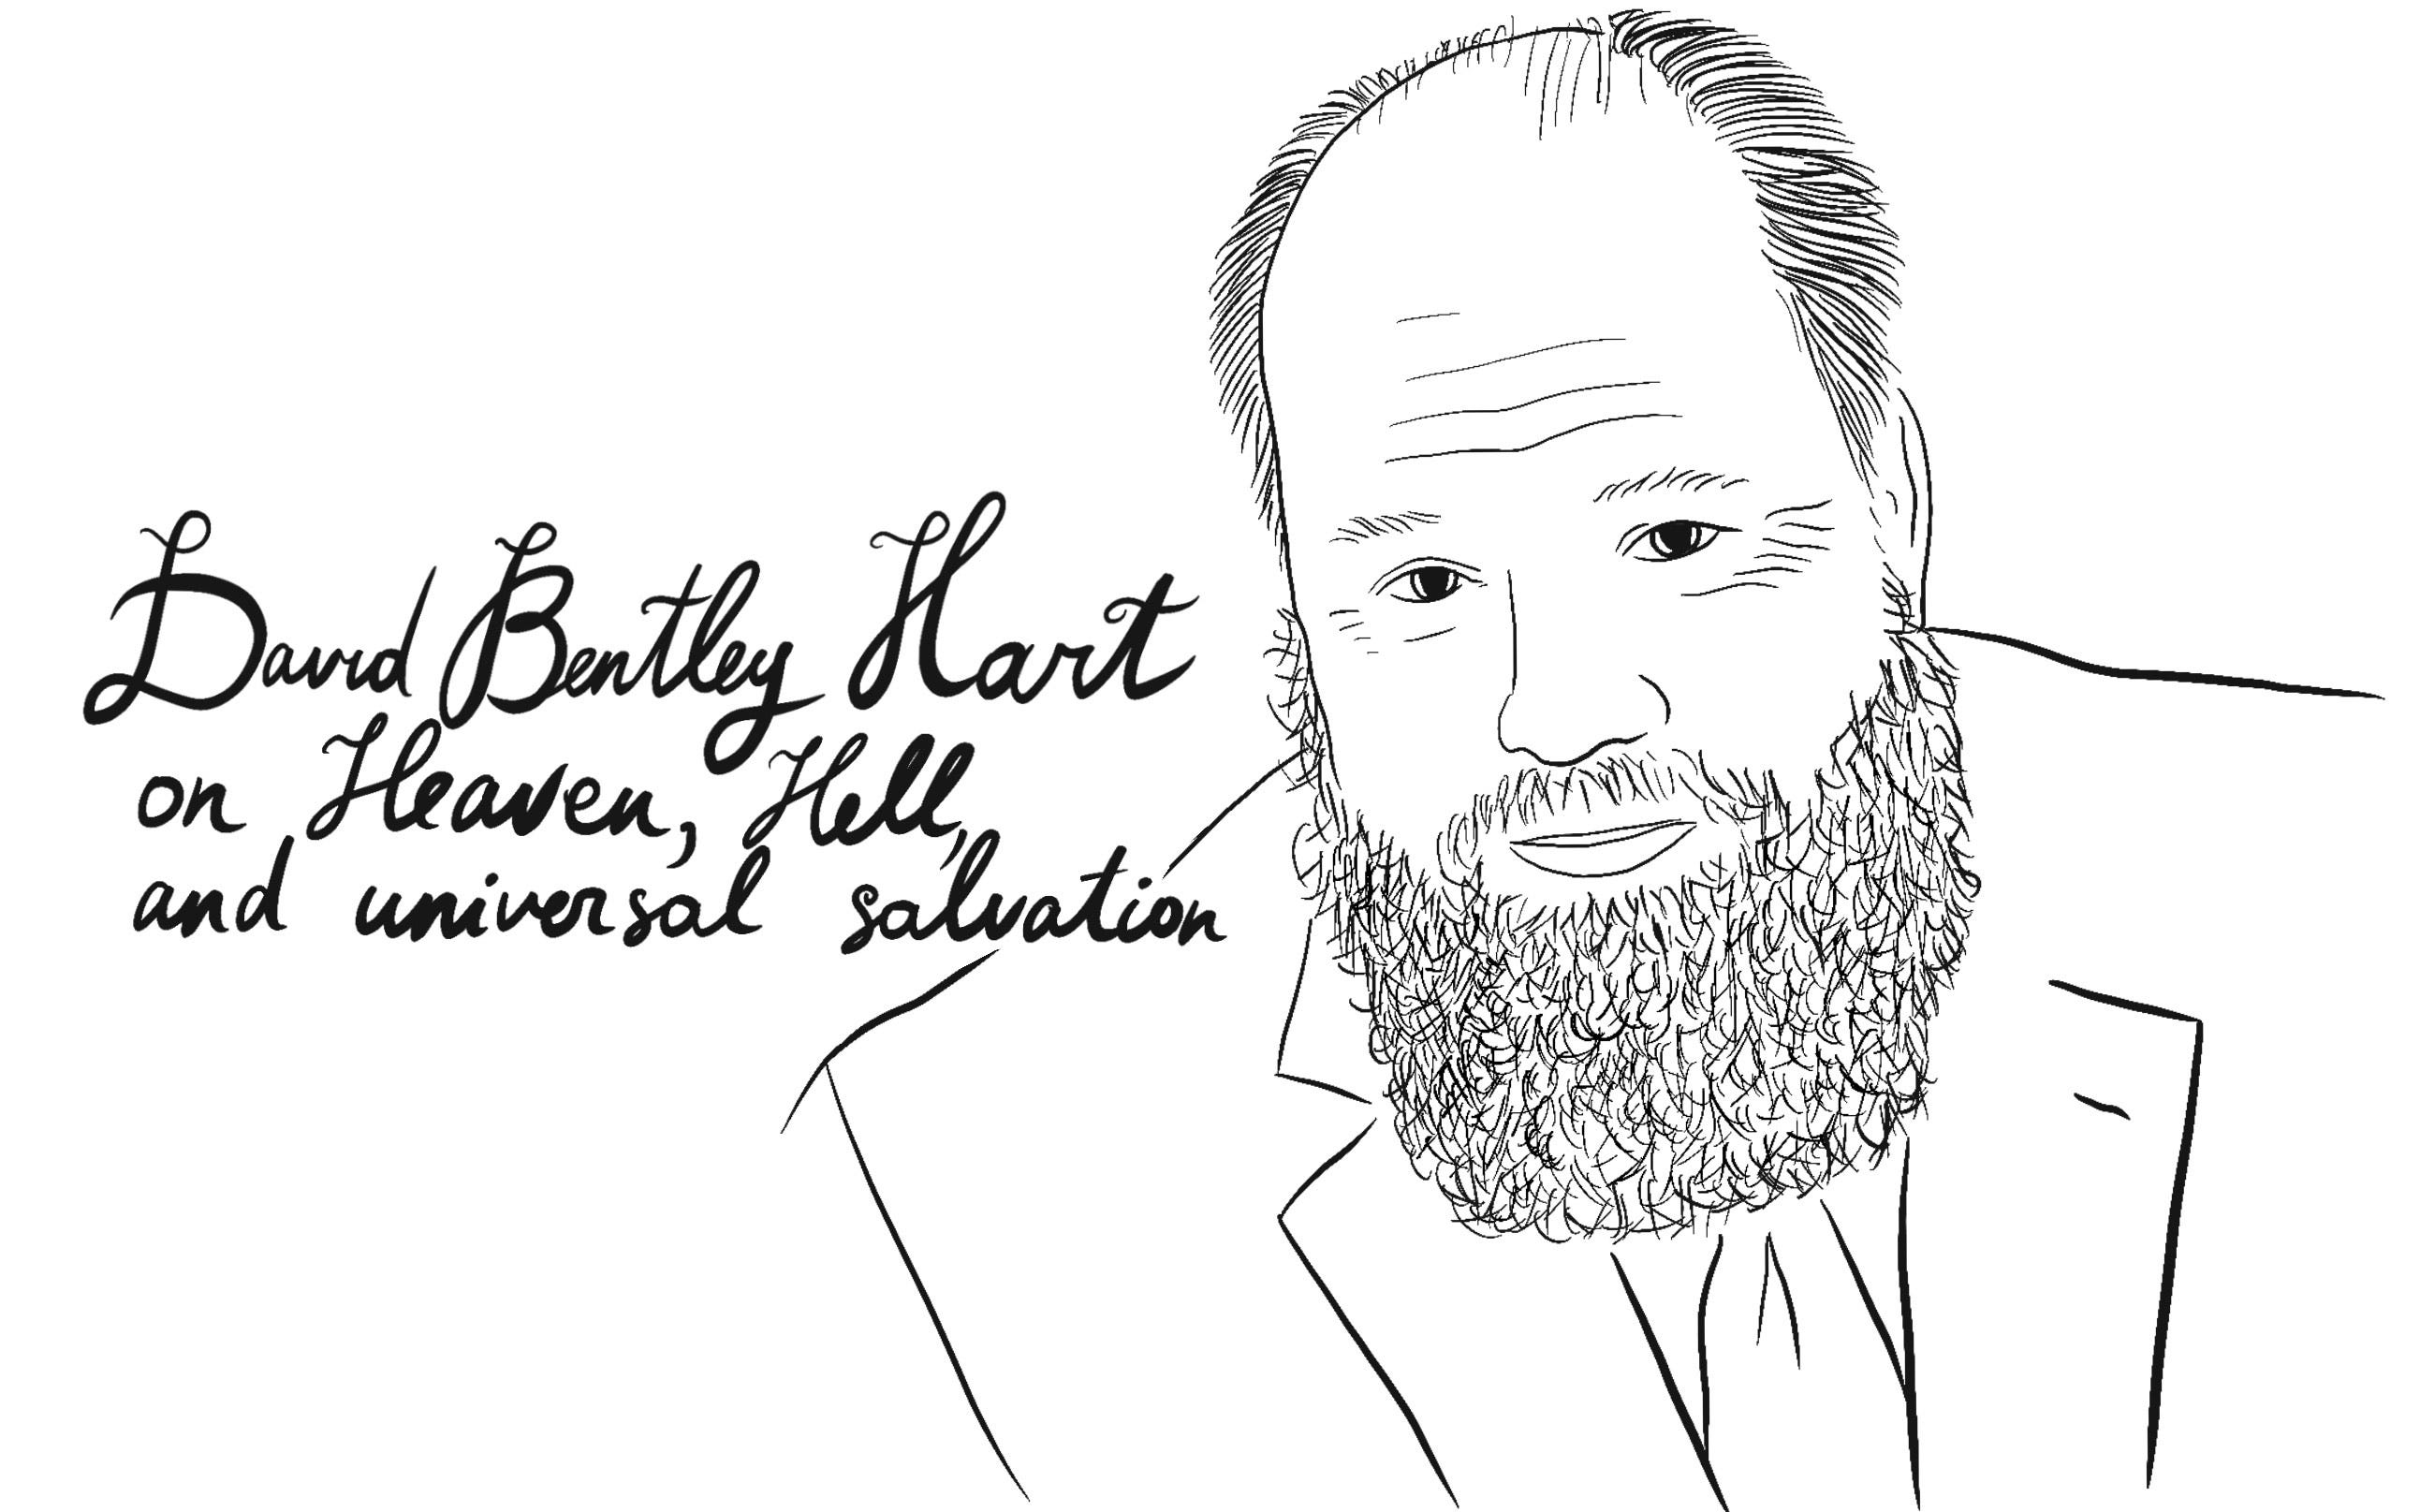 David Bentley Hart
on Heaven, Hell,
and universal salvation